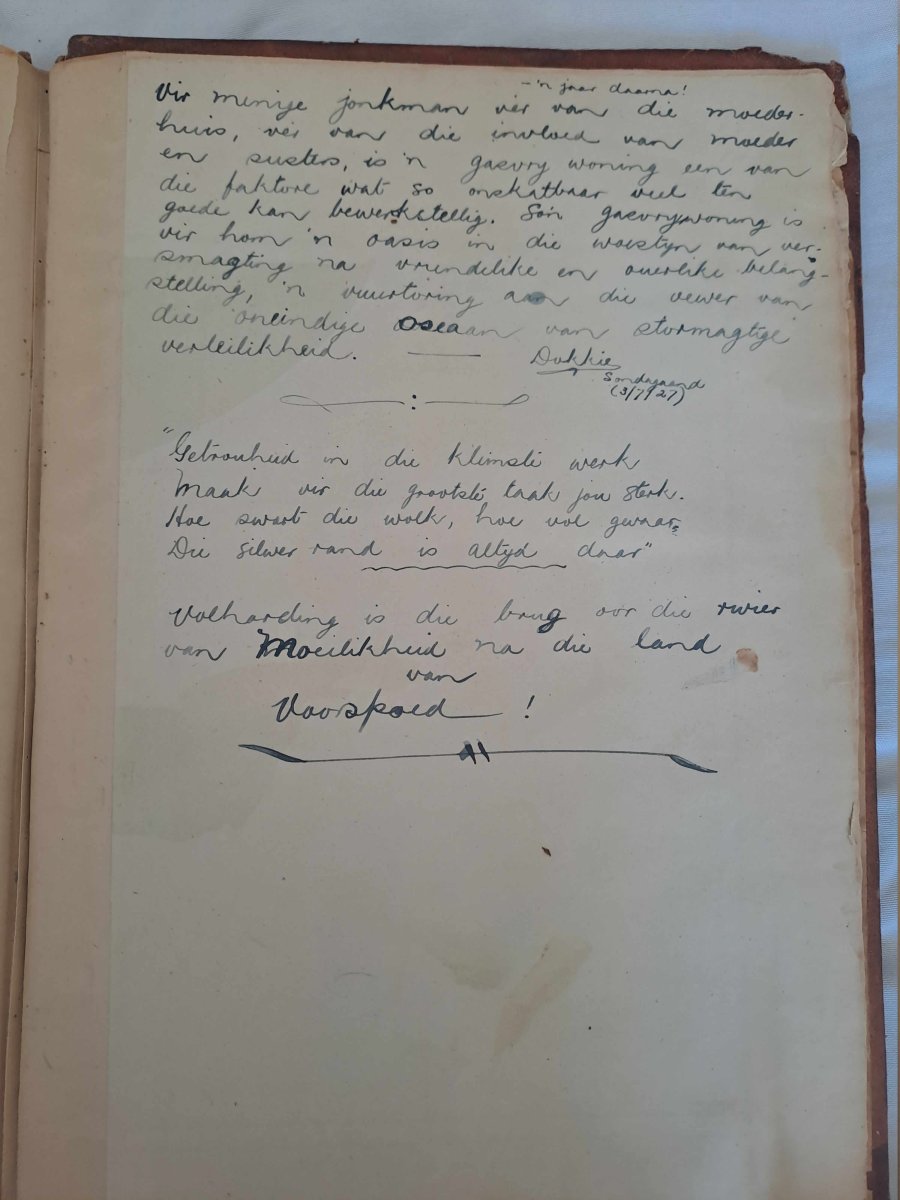 – 'n jaar daarna!
Vir menige jonkman vêr van die moeder-
huis, vêr van die invloed van moeder
en susters, is 'n gasvry woning een van
die faktore wat so onskatbaar veel ten
goede kan bewerkstellig. So'n gasvrywoning is
vir hom 'n oasis in die woestyn van ver-
smagting na vriendelike en ouerlike belang-
stelling, 'n vuurtoring aan die oewer van
die oneindige oseaan van stormagtige
verleilikheid.
Dokkie
Sondagaand
(3/7/27)
"Getrouheid in die kleinste werk
Maak vir die grootste taak jou sterk.
Hoe swart die wolk, hoe vol gevaar,
Die silwer rand is altyd daar"
Volharding is die brug oor die rivier
van Moeilikheid na die land
van
Voorspoed !